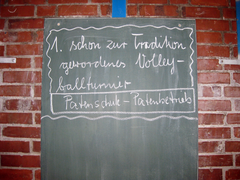 1. schon zur Tradition
gewordenes Volley-
ballturnier
Patenschule - Patenbetrieb